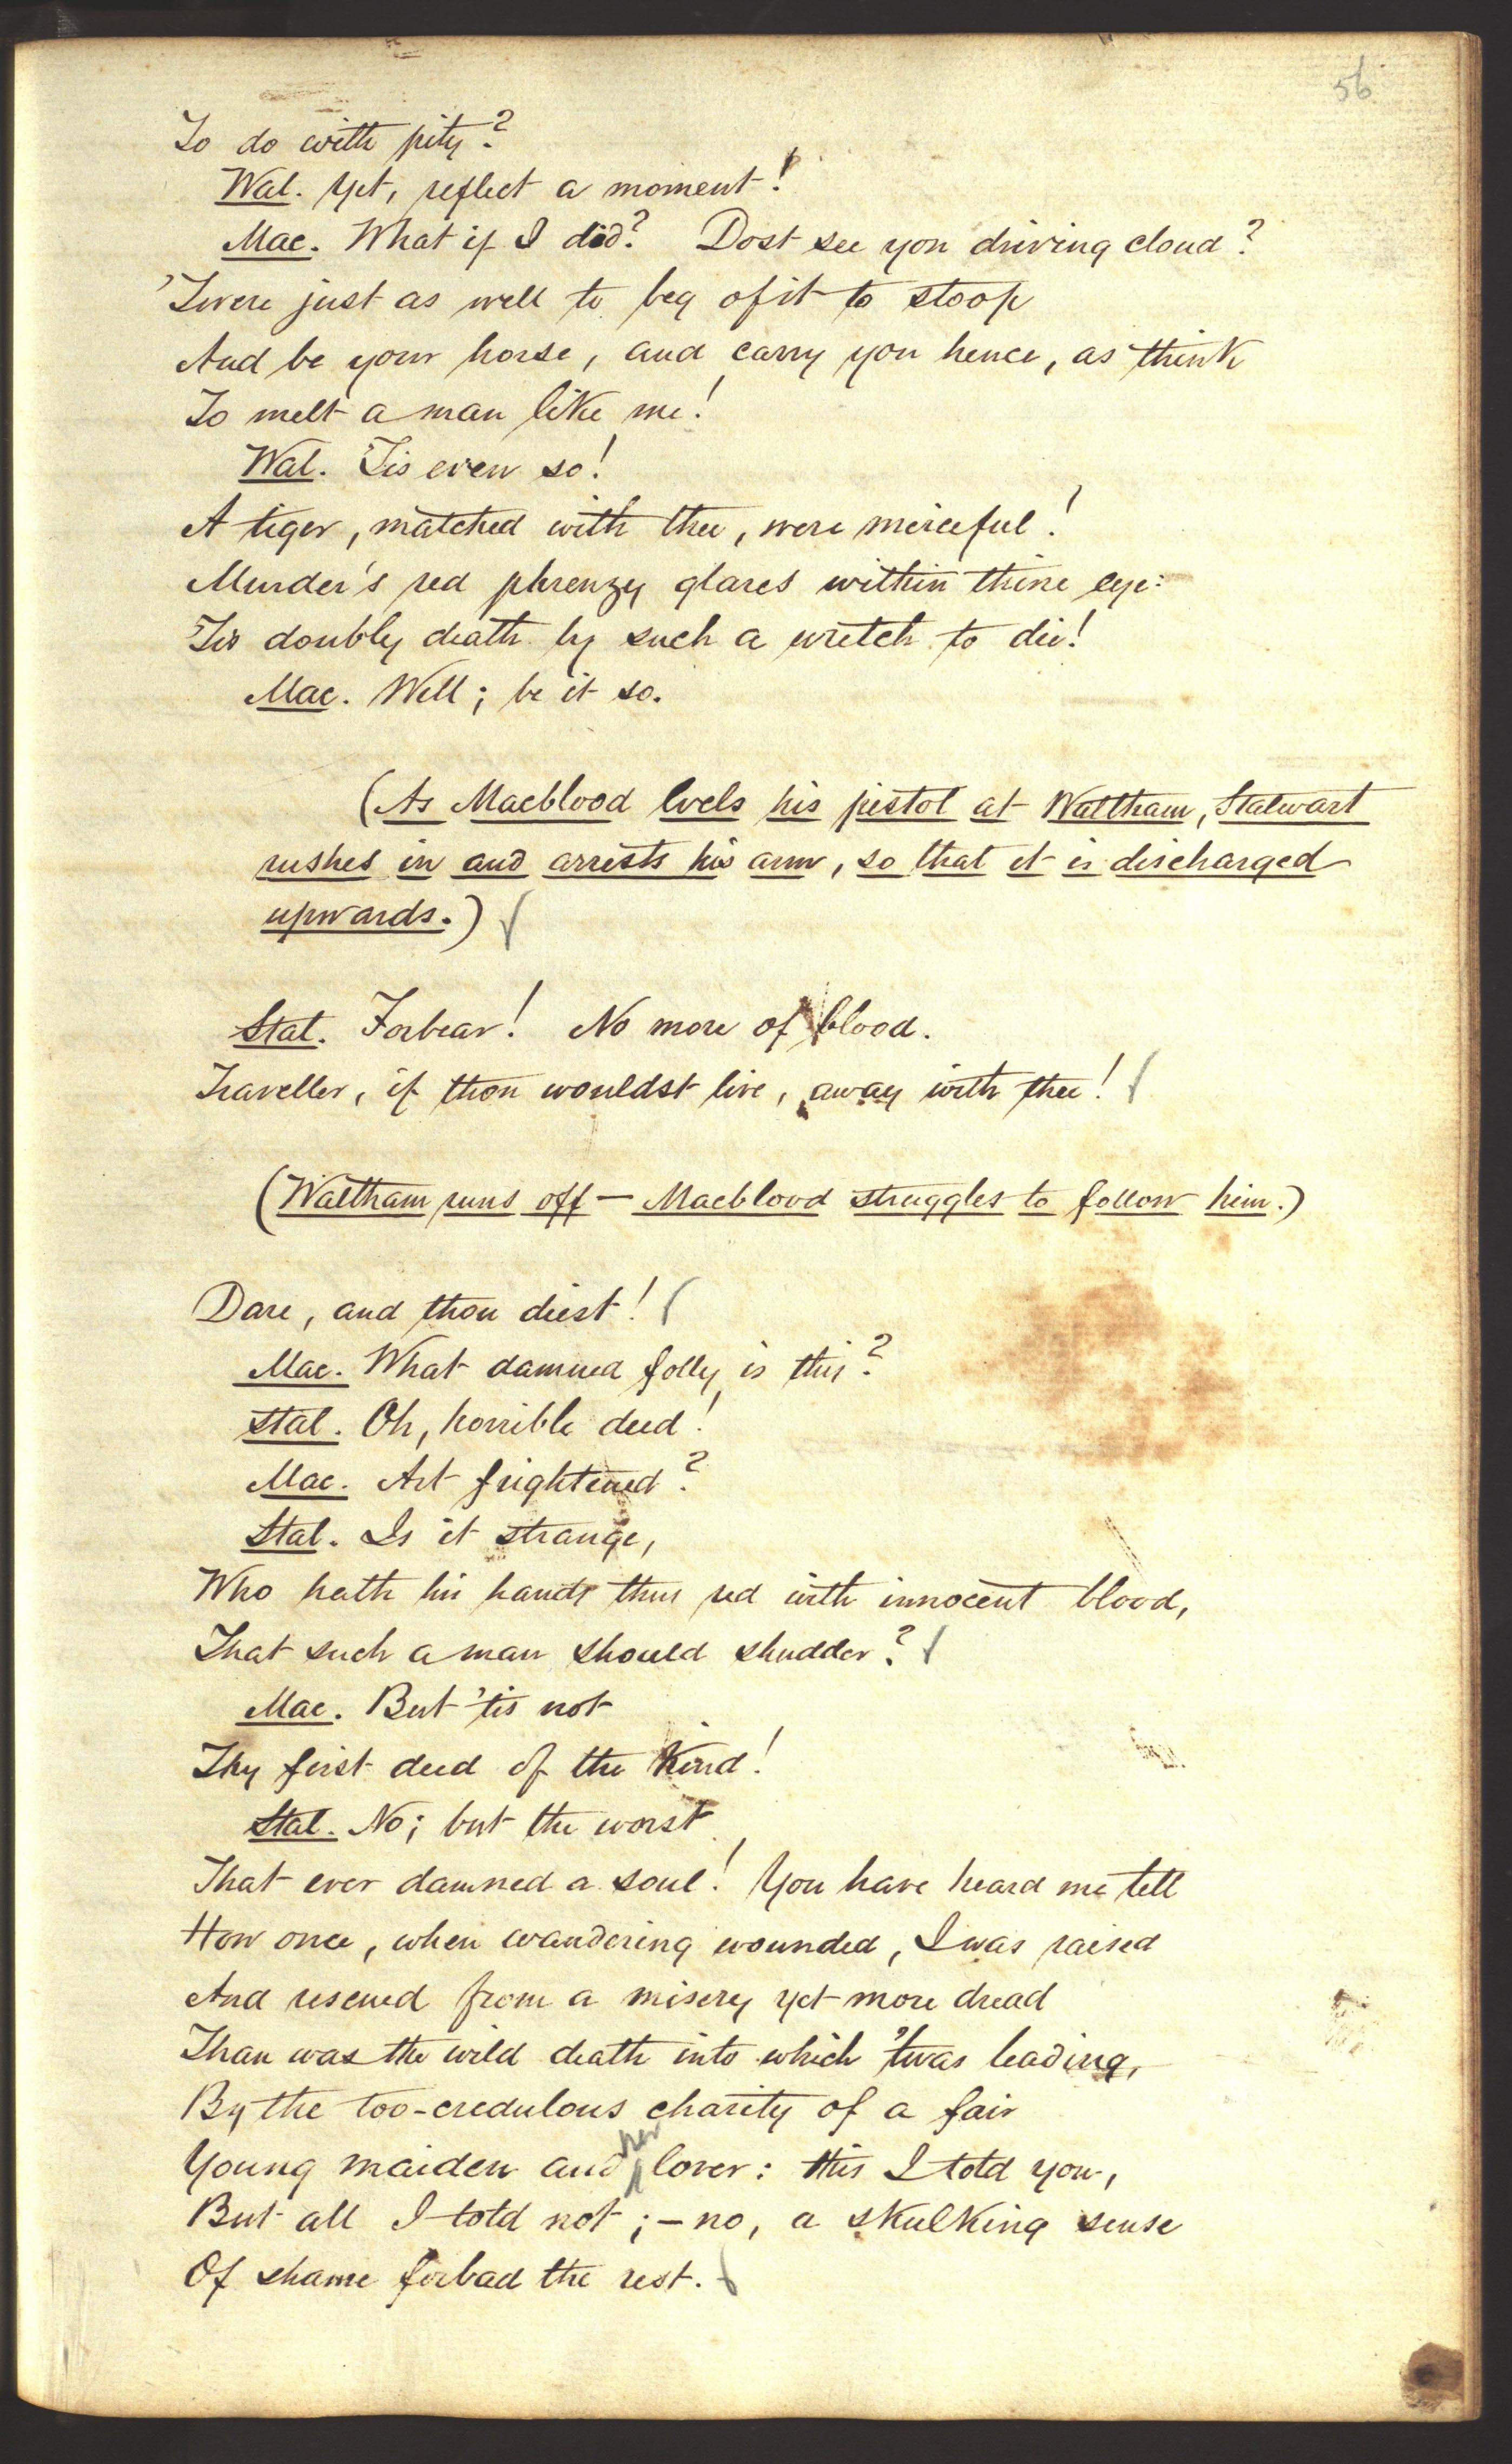 56
To do with pity?
Wal. Yet, reflect a moment!
Mac. What if I did? Dost see yon driving cloud?
'Twere just as well to beg of it to stoop
And be your horse, and carry you hence, as think
To melt a man like me!
Wal. 'Tis even so!
A tiger, matched with thee, were merciful!
Murder's red phrenzy glares within thine eye:
'Tis doubly death by such a wretch to die!
Mac. Well; be it so.
(As Macblood levels his pistol at Waltham, Stalwart
rushes in and arrests his arm, so that it is discharged
upwards.)
Stal. Forbear! No more of blood.
Traveller, if thou wouldst live, away with thee!
(Waltham runs off — Macblood struggles to follow him.)
Dare, and thou diest!
Mac. What damned folly is this?
Stal. Oh, horrible deed!
Mac. Art frightened?
Stal. Is it strange,
Who hath his hands thus red with innocent blood,
That such a man should shudder?
Mac. But 'tis not
Thy first deed of the kind!
Stal. No; but the worst
That ever damned a soul! You have heard me tell
How once, when wandering wounded, I was raised
And rescued from a misery yet more dread
Than was the wild death into which 'twas leading,
By the too-credulous charity of a fair
Young maiden and her lover: this I told you,
But all I told not; – no, a skulking sense
Of shame forbad the rest.